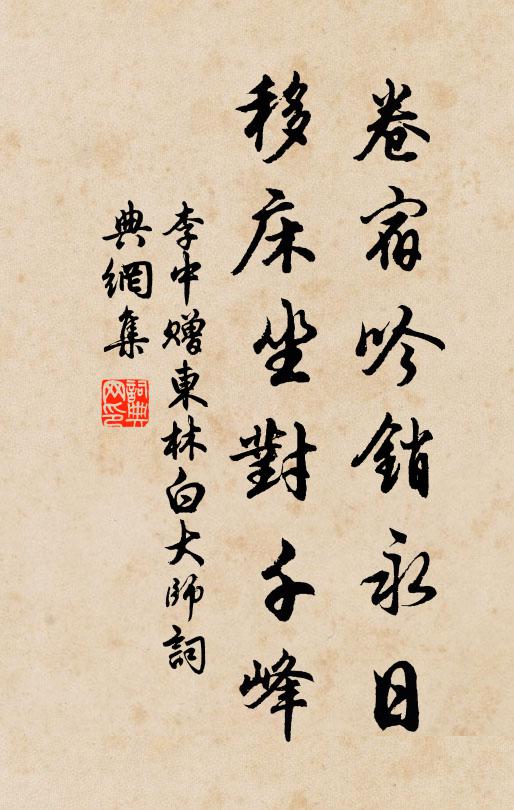 卷宿吟銷永日
移床坐對千峰
李中贈東林白大師詞
典網集
詞典
网印